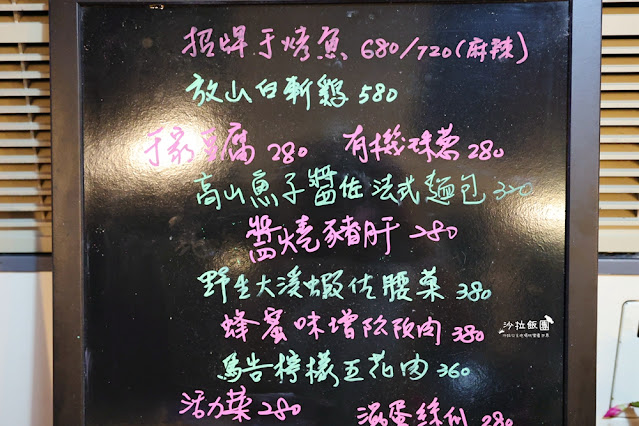 招牌手烤魚 680/720(麻辣)
放山白斬鷄 580
手家豆腐 280 有機珠葱 280
高山魚子醬佐法式麵包 320
醬燒豬肝 280
野生大湊蝦佐腰菓 380
蜂蜜味增 肉 380
沙拉飯團
馬告檸檬五花肉 360
活力菜 280 蛋絲瓜 280